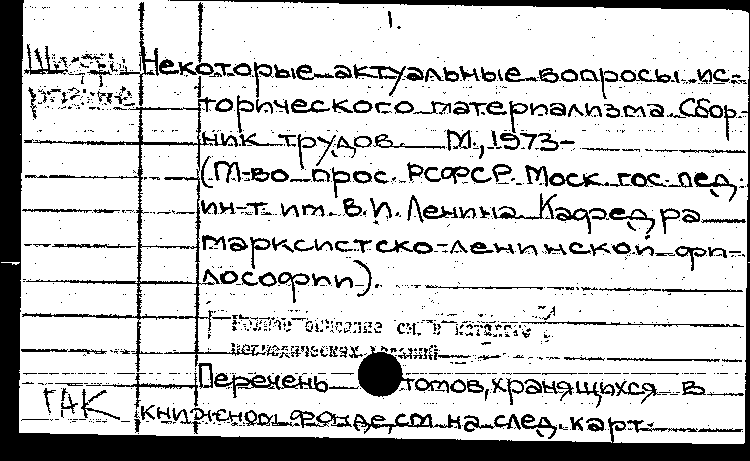 1.
Шифры Некоторые актуальные вопросы ис-
торического материализма. Сбор-
ник трудов. М., 1973-
(М-во прос. РСФСР. Моск. гос. пед.
ин-т им. В.И. Ленина. Кафедра
марксистско-ленинской фи-
лософии).
Полное описание см. в каталоге
периодических изданий
Перечень томов, хранящихся в
ГАК книжном фонде, см. на след. карт.